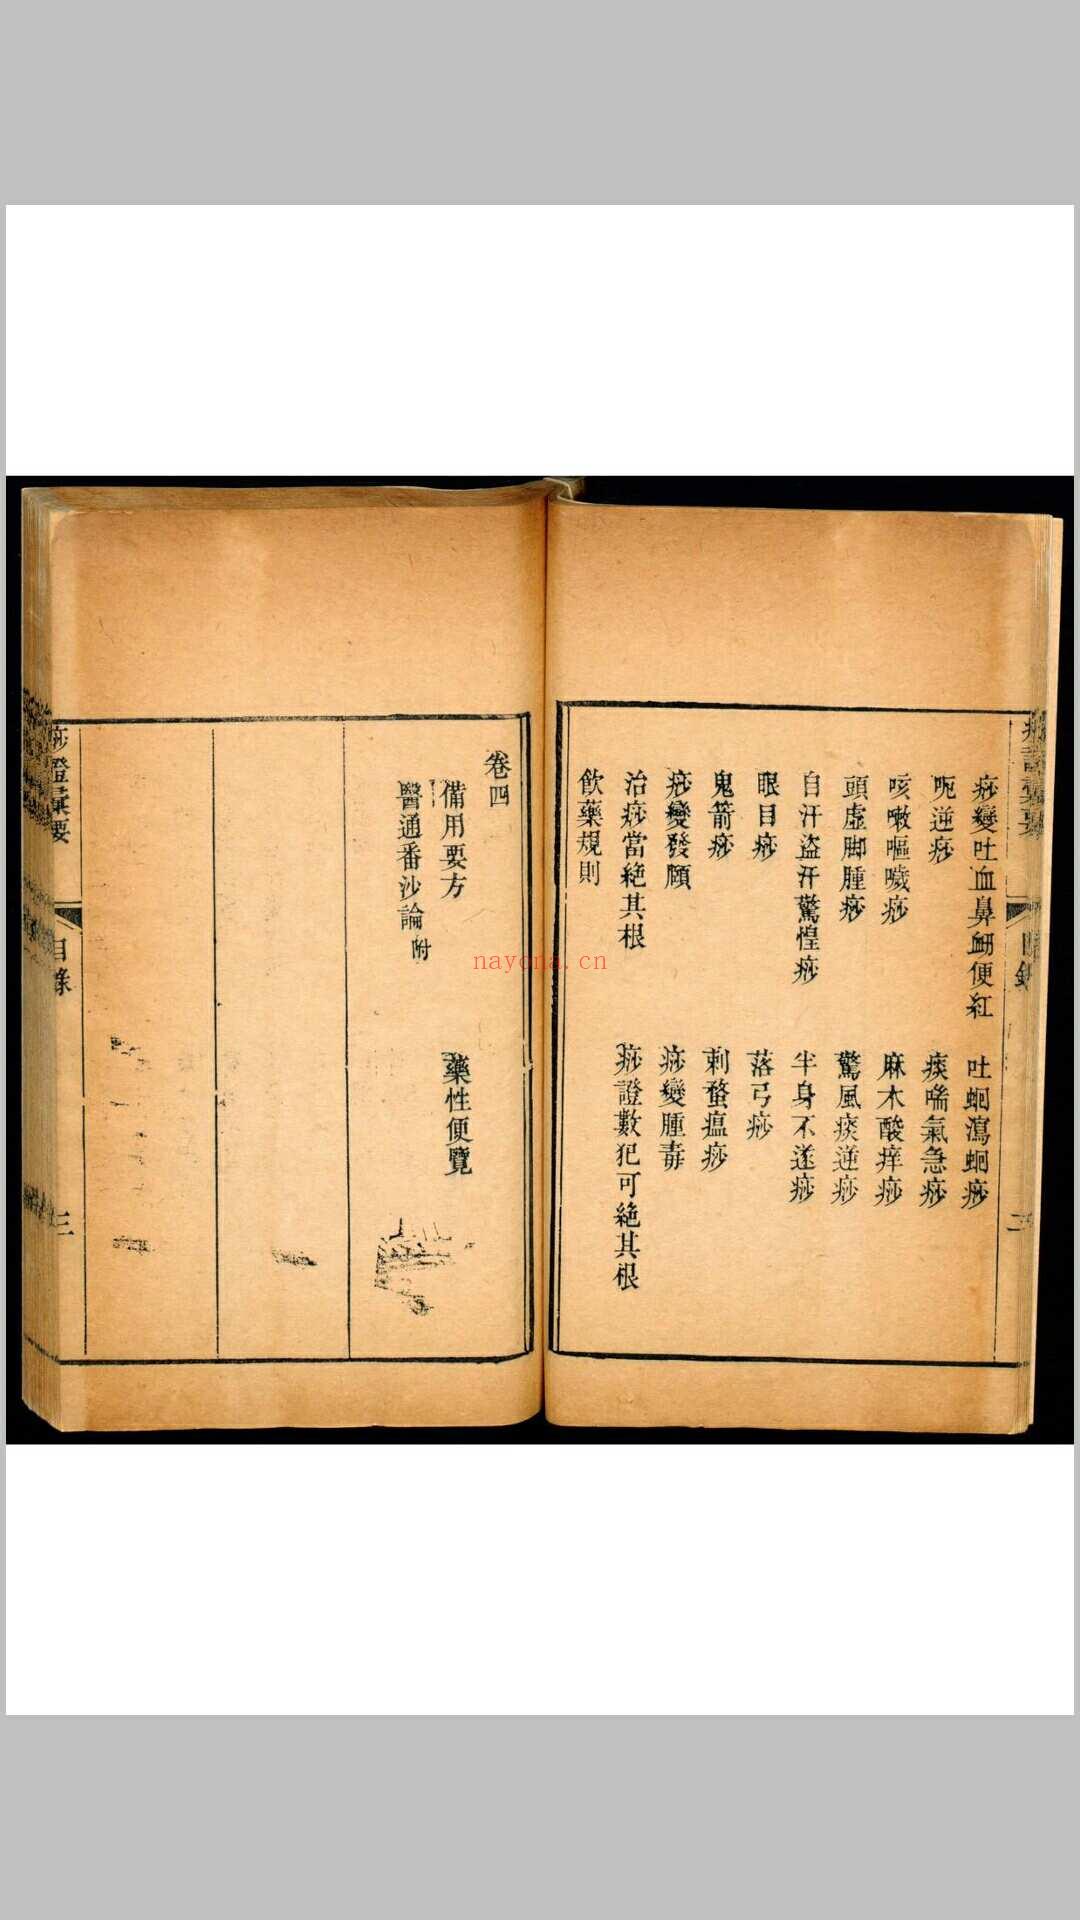 痧變吐血鼻衄便紅 吐蛔瀉蛔痧
呃逆痧 痰喘氣急痧
咳嗽嘔噦痧 麻木酸痒痧
頭虛脚腫痧 驚風痰逆痧
自汗盜汗驚惶痧 半身不遂痧
眼目痧 落弓痧
鬼箭痧 刺蝥瘟痧
痧變發頤 痧變腫毒
治痧當絕其根 痧證數犯可絕其根
飲藥規則
卷四
備用要方 藥性便覽
醫通番沙論附
痧證彙要
目錄
三
nayona.cn